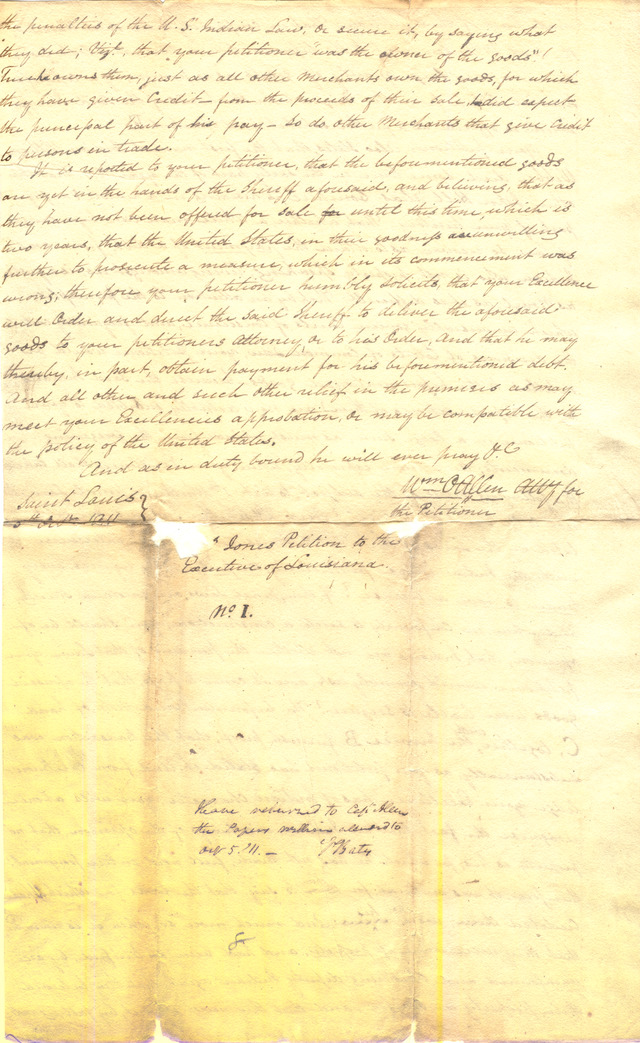 the penalties of the U.S. Indian Law, or secure it, by saying what
they did; Viz.t, that your petitioner "was the owner of the goods"!
True he owns them, just as all other Merchants own the goods, for which
they have given Credit – from the proceeds of their sale he did expect
the principal part of his pay – So do other Merchants that give Credit
to persons in trade.
It is reported to your petitioner, that the beforementioned goods
are yet in the hands of the Sheriff aforesaid, and beliving, that as
they have not been offered for sale for until this time, which is
two years, that the United States, in their goodness are unwilling
further to prosecute a measure, which in its commencement was
wrong; therefore your petitioner humbly solicits, that your Excellence
will Order and direct the said Sheriff to deliver the aforesaid
goods to your petitioners Attorney, or to his Order, And that he may
thereby, in part, obtain payment for his beforementioned debt.
And all other and such other relief in the premises as may
meet your Excellencies approbation, or may be compatible with
the policy of the United States.
And as in duty bound he will ever pray &C
Wm C Allen Atty for
the Petitioner
Saint Louis
Jones Petition to the
Executive of Louisiana.
No. 1.
I have returned to Capt Allen
the Papers within alluded to
Oct 5. 11. –